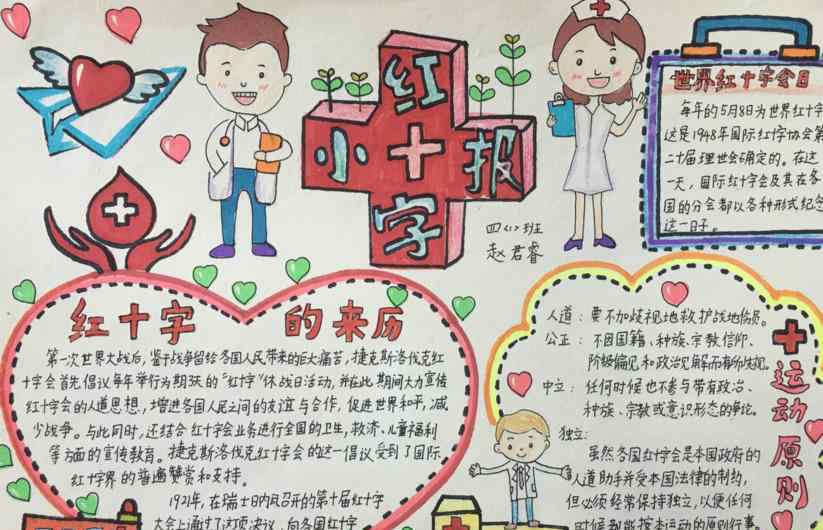 红十字小报
四(1)班
赵君睿
世界红十字会日
每年的5月8日为世界红十字
这是1948年国际红十字协会第
二十届理世会确定的。在这
一天，国际红十字会及其在各
国的分会都以各种形式纪念
这一日子。
红十字的来历
第一次世界大战后，鉴于战争留给各国人民带来的巨大痛苦，捷克斯洛伐克红
十字会首先倡议每年举行为期3天的“红十字”休战日活动，并在此期间大力宣传
红十字会的人道思想，增进各国人民之间的友谊与合作，促进世界和平，减
少战争。与此同时，还结合红十字会业务进行全国的卫生，救济、儿童福利
等方面的宣传教育。捷克斯洛伐克红十字会的这一倡议受到了国际
红十字界的普遍赞赏和支持。
1921年，在瑞士日内瓦召开的第十届红十字
大会上通过了这项决议，向各国红十字
运动原则
人道：要不加歧视地救护战地伤员。
公正：不因国籍、种族、宗教信仰、
阶级偏见和政治见解而有所歧视。
中立：任何时候也不参与带有政治、
种族、宗教或意识形态的争论。
独立：
虽然各国红十字会是本国政府的
人道助手并受本国法律的制约，
但必须经常保持独立，以便任何
时候都能按本运动的原则行事